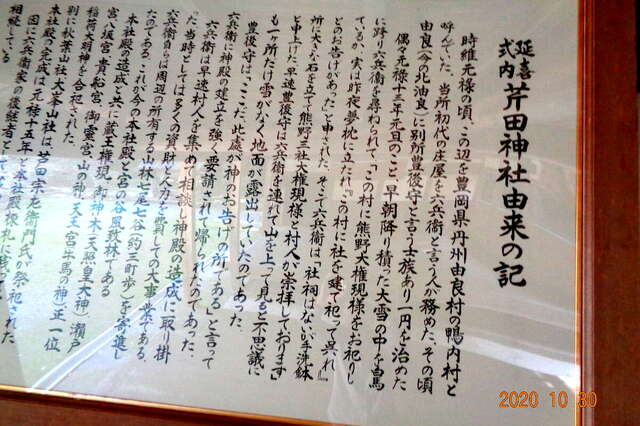 延喜式内 芹田神社由来の記
時維元禄の頃、この辺を豊岡県丹州由良村の鴨内村と
呼んでいた。当所初代の庄屋を六兵衛と言う人が務めた。その頃
由良(今の北油良)に別所豊後守と言う士族あり一円を治めた
偶々元禄十三年元旦のこと、早朝降り積った大雪の中を白馬
に跨り六兵衛を尋ねられて、「この村に熊野大権現様をお祀りし
ているか、実は昨夜夢枕に立たれ、この村に社を建て祀って呉れ」
とのお告げがあった」と申された。そこで六兵衛は「社祠はないが手洗鉢
所に大きな石を立て熊野三社大権現様と村人が崇拝しております」
と申上げた。早速豊後守は六兵衛を連れて山を上って見ると不思議に
も一ヶ所だけ雪がなく地面が露出していたのであった。
豊後守は、「ここだ、此處が神のお告げの所である」と言って
六兵衛に神殿の建立を強く要請されて帰られたのであった。
六兵衛は早速村人を集めて相談し神殿の造成に取り掛
った当時としては多くの資財と人力を費しての大事業である。
六兵衛自らは周辺の所有する山林七尾七谷(約三町歩)を寄進し
たのである。これが今の本社殿と宮の谷境内林である。
本社殿の造成と共に蔵王権現、新神木(天照皇大神)瀬戸
宮、八坂宮、貴船宮、御霊宮、山の神、天王宮(牛馬の神)正一位
稲荷大明神をも合祀された。
別に秋葉山社、大峯山社は、芦田宗左衛門氏が祭祀された
本社殿の完成は元禄十五年と本社殿棟札に
因に六兵衛家の後継者として
相続している
2020 10 30